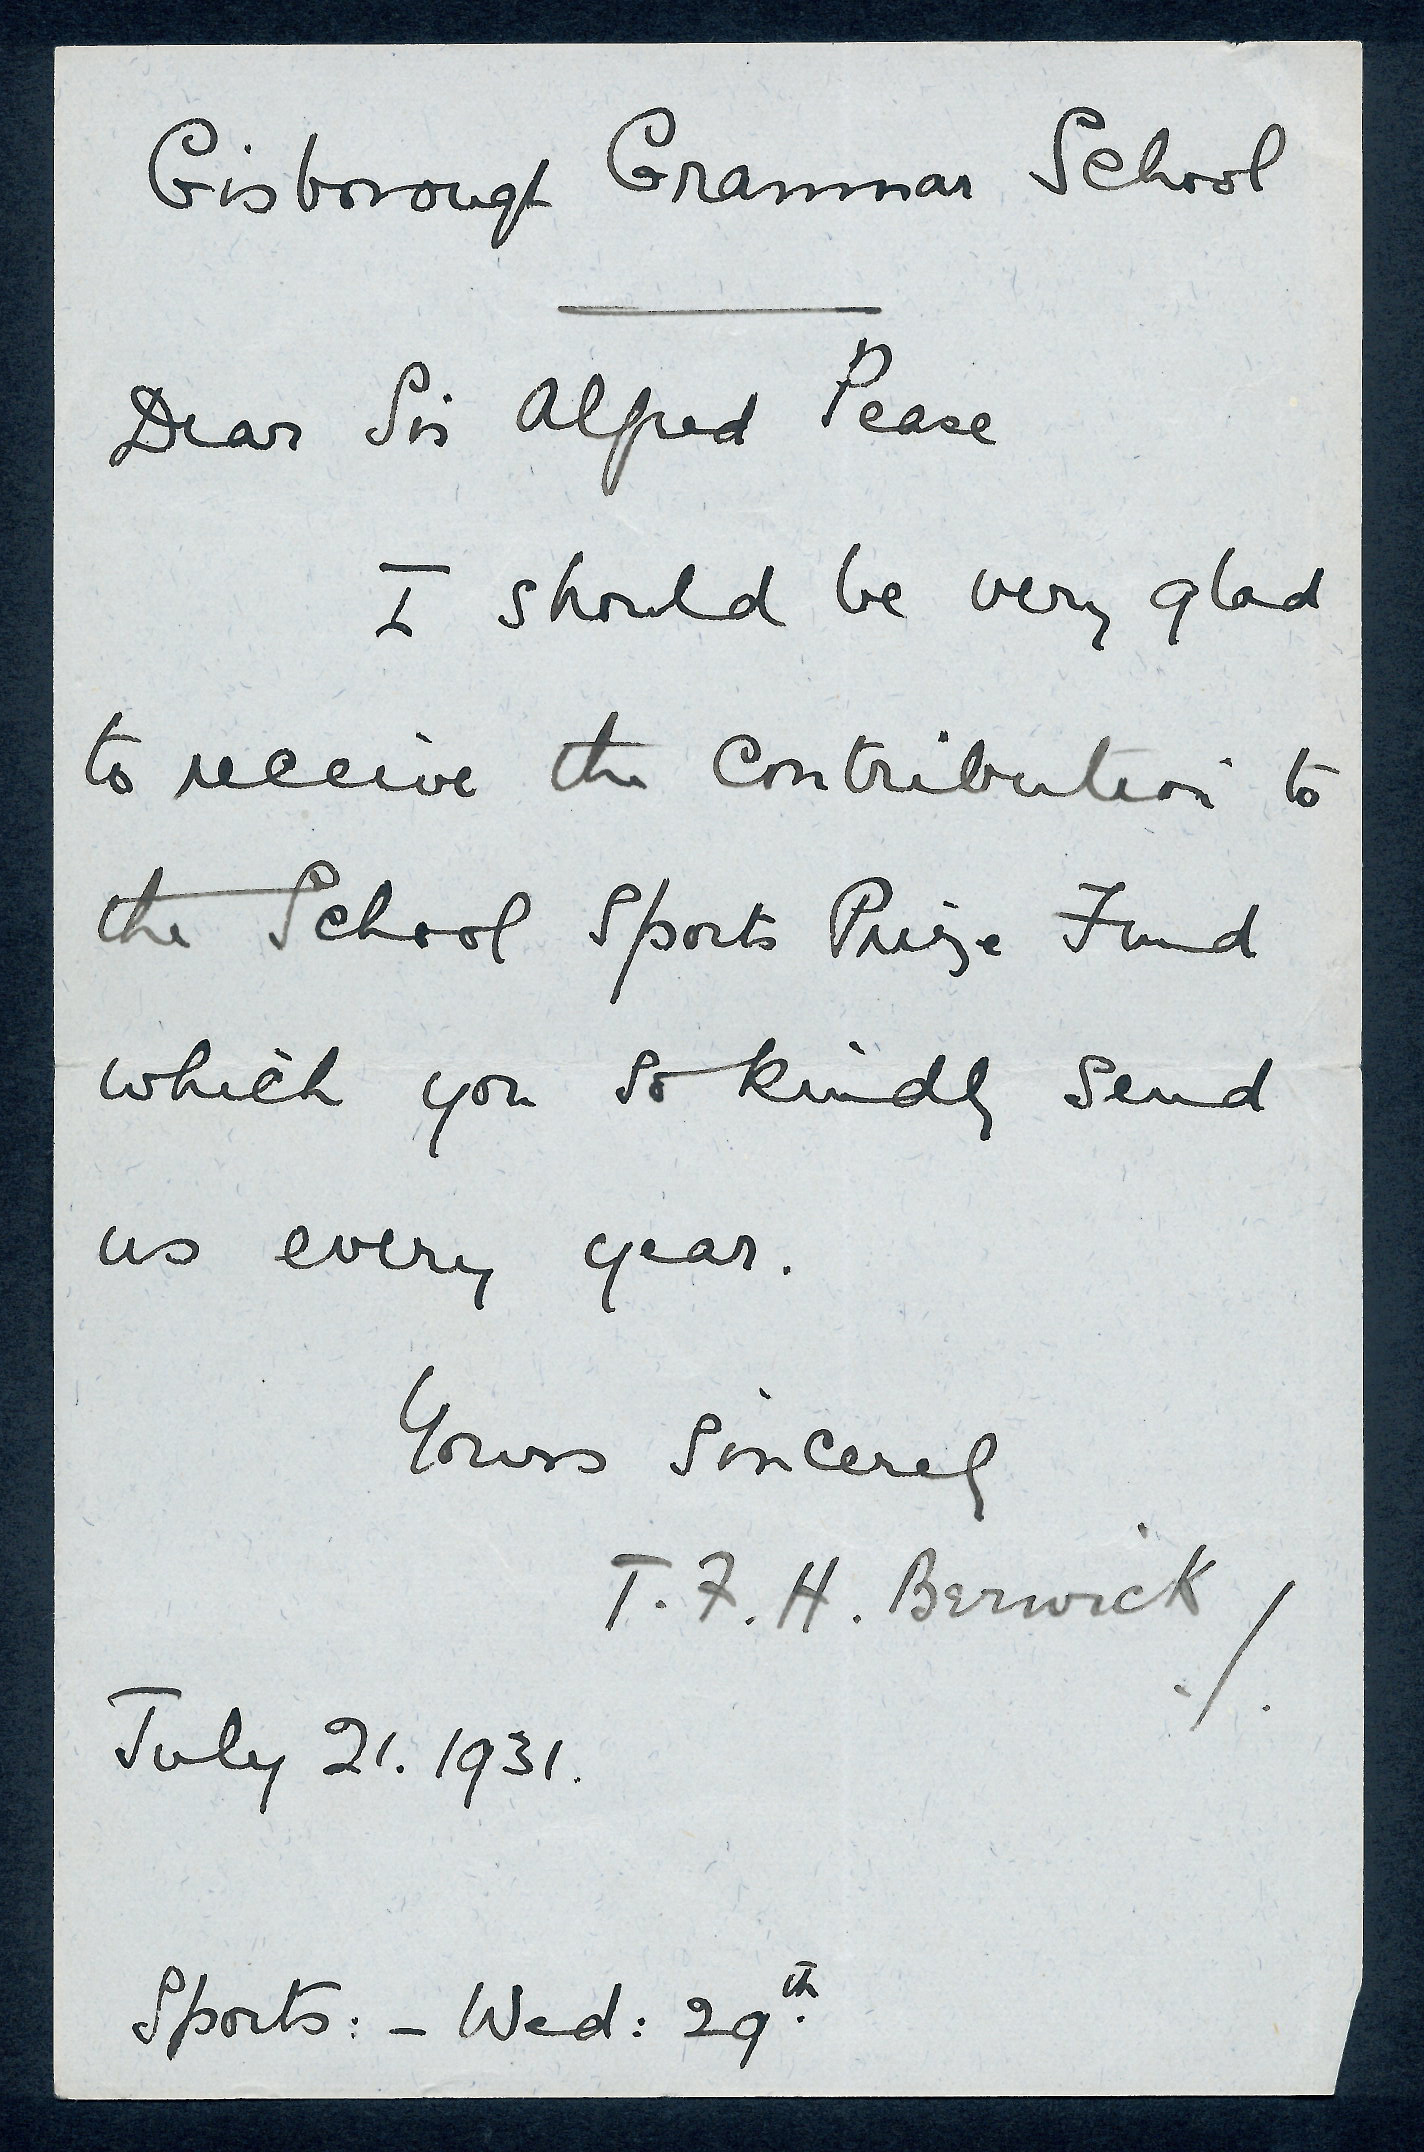 Gisborough Grammar School
Dear Sir Alfred Pease
I should be very glad
to receive the contribution to
the School Sports Prize Fund
which you so kindly send
us every year.
Yours sincerely
T. F. H. Berwick
July 21. 1931.
Sports: - Wed: 29th.